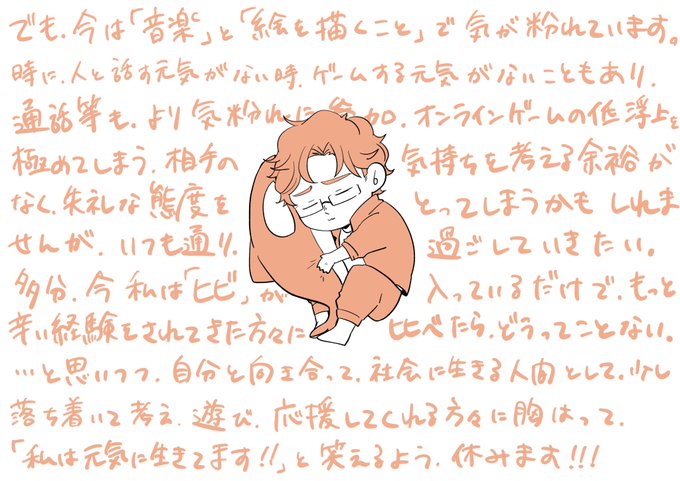 でも、今は「音楽」と「絵を描くこと」で気が紛れています。
時に、人と話す元気がない時、ゲームする元気がないこともあり、
通話等も、より気紛れに参加、オンラインゲームの低浮上を
極めてしまう、相手の気持ちを考える余裕が
なく、失礼な態度をとってしまうかもしれま
せんが、いつも通り、過ごしていきたい。
多分、今私は「ヒビ」が入っているだけで、もっと
辛い経験をされてきた方々に比べたら、どうってことない。
…と思いつつ、自分と向き合って、社会に生きる人間として、少し
落ち着いて考え、遊び、応援してくれる方々に胸はって、
「私は元気に生きてます!!」と笑えるよう、休みます!!!